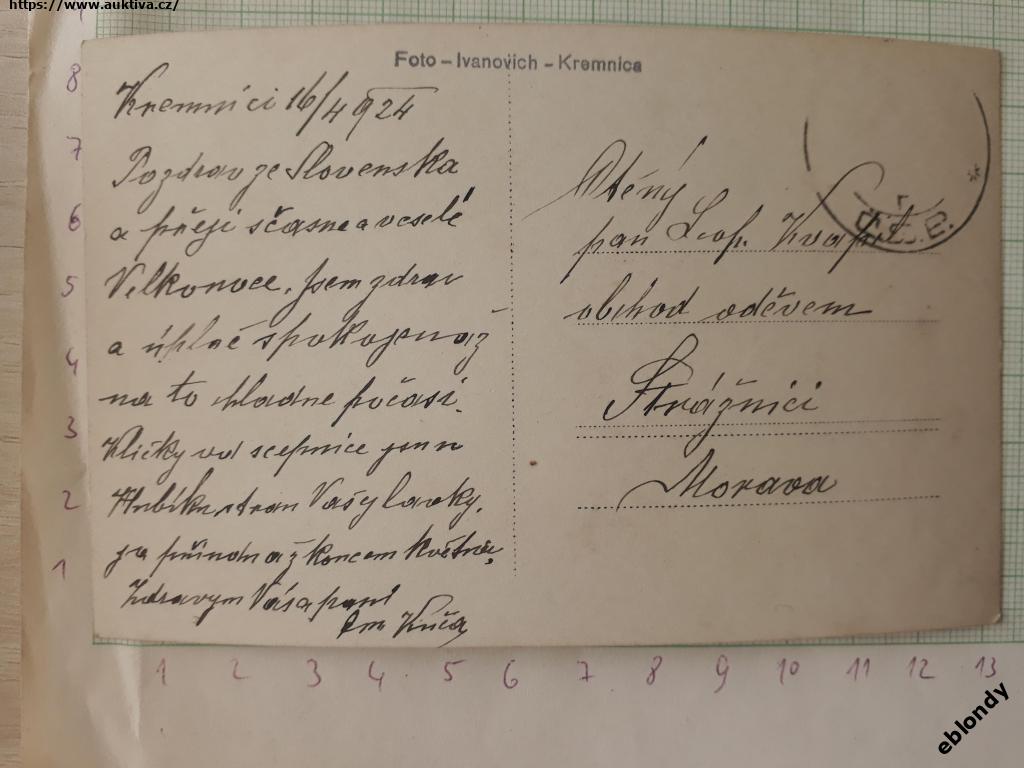 https://www.auktiva.cz/
Foto – Ivanovich – Kremnica
Kremnici 16/4 1924
Pozdrav ze Slovenska
a přeji sčasne a veselé
Velkonoce. Jsem zdrav
a úplně spokojen až
na to chladne počasi.
Kličky od scepnice jsou
stran Vašy lavky.
ja přiindu až koncem května.
Zdravym Vás a pani
Ctěný
pan Leop. Kvapil
obchod oděvem
Strážnici
Morava
8
7
6
5
4
3
2
1
1 2 3 4 5 6 7 8 9 10 11 12 13
eblondy